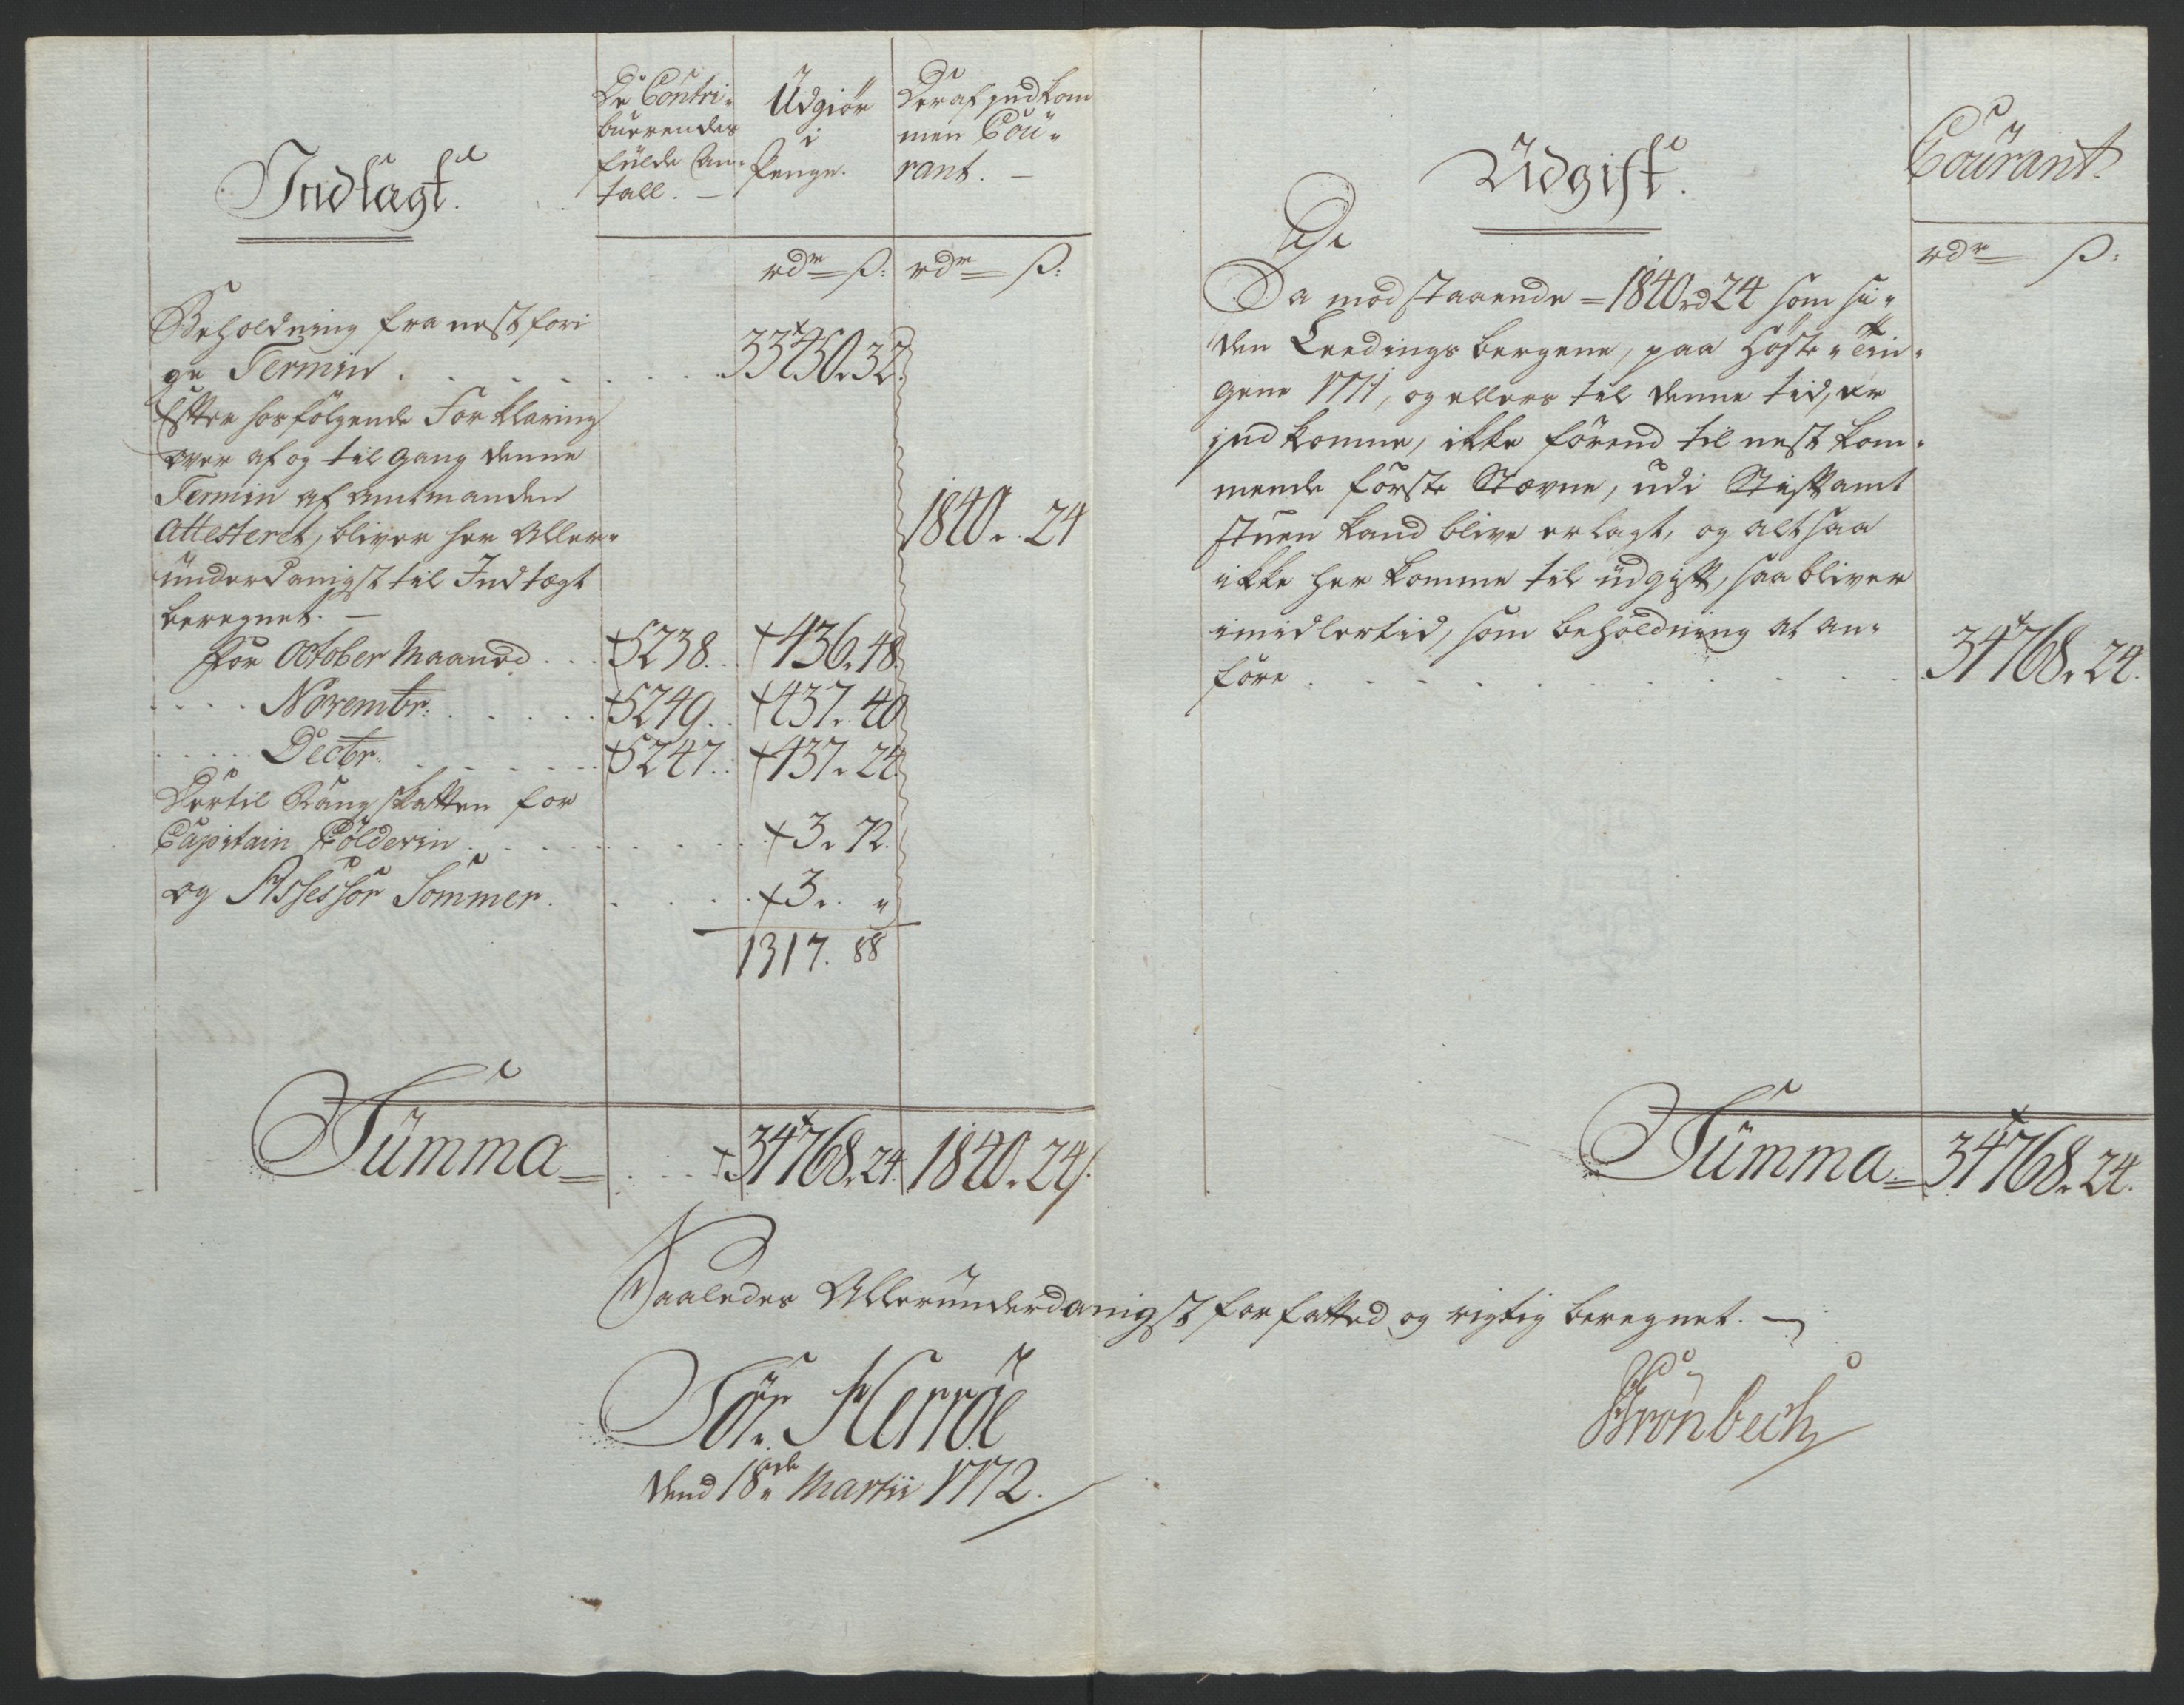 Indtægt.
De Contri-
buerendes
fulde An-
tall. —
Udgiør
i
Penge.
Deraf indkom
men Cou-
rant. —
rdr ß: rdr ß:
Beholdning fra nestfori
ge Termin . . . . . . . 33450.32.
Efter hosfølgende Forklaring
over af og til gang denne
Termin af Amtmanden
Attesteret, bliver her Aller-
underdanigst til Indtægt
beregnet. — 1840. 24
for October Maaned . . . 5238. . 436. 48.
. . . . Novembr: . . . . . . 5249. . 437. 40
. . . . . Decbr. . . . . . . 5247. . 437. 24
Dertil Rang skatten for
Capitain Pölderin . . . . . . . . . 3. 72.
og Assessor Sommer. . . . . . 3. "
1317. 88
Summa = . . . 34768. 24. 1840. 24.
Udgift.
Courant.
rdr ß:
Da modstaaende = 1840 rd 24 som
den Leedings bergene, paa Høste-Tin-
gene 1771, og ellers til denne tid, er
ind komme, ikke førend til nestkom-
mende første Stævne, udi Stiftamt
stuen kand blive erlagt, og altsaa
ikke her komme til udgift, saa bliver
imidlertid, som beholdning at an-
føre . . . . . . . . . . 34768. 24.
Summa = 34768. 24.
Saaledes Allerunderdanigst forfatted og rigtig beregnet. —
Sör. Herröe
dend 18de Martii 1772.
Brönbech